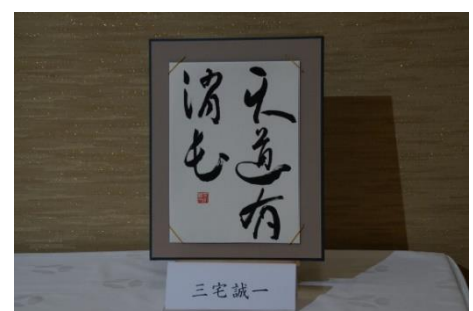 天道有
消長
三宅誠一